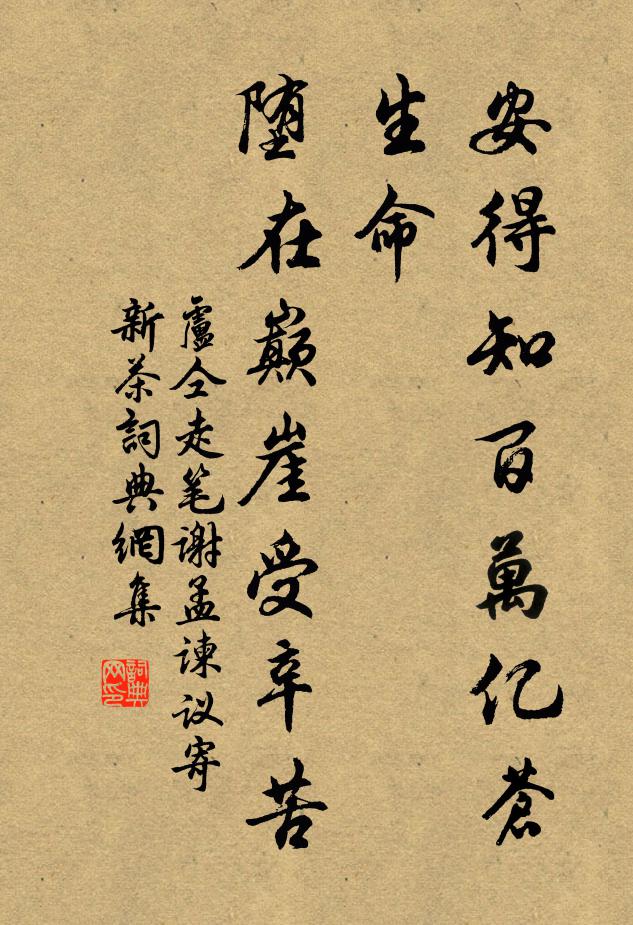 安得知百萬亿蒼
生命
堕在巔崖受辛苦
盧仝走笔謝孟諫议寄
新茶詞典網集
詞典
网印